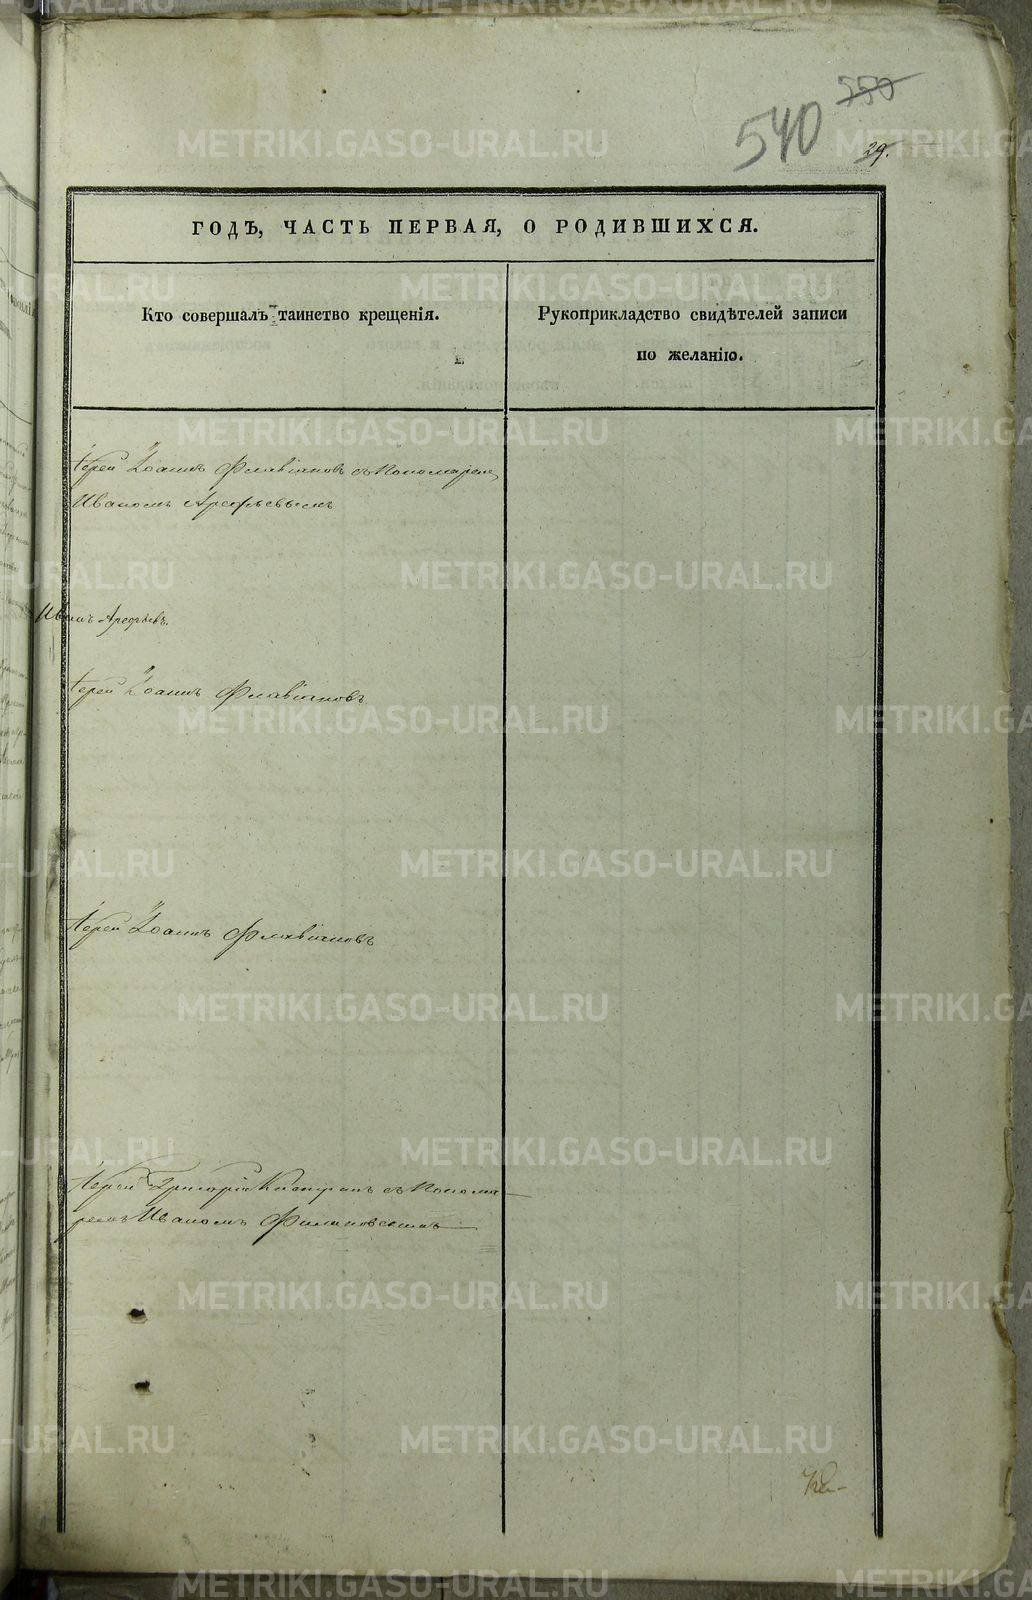 550
540
29.
ГОДЪ, ЧАСТЬ ПЕРВАЯ, О РОДИВШИХСЯ.
Кто совершалъ таинство крещенія.
Рукоприкладство свидѣтелей записи
по желанію.
Іерей Іоаннъ Флавіановъ съ Пономаремъ
Иваномъ Арефьевымъ
Иванъ Арефьевъ.
Іерей Іоаннъ Флавіановъ
Іерей Іоаннъ Флавіановъ
Іерей Григорій съ Понома
ремъ Иваномъ Филиповымъ
METRIKI.GASO-URAL.RU